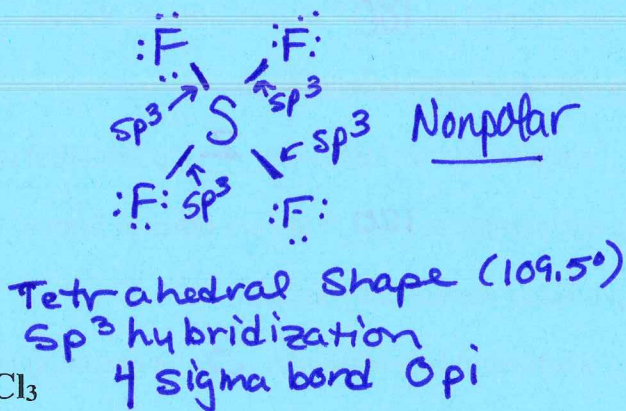 :F̈: :F̈:
sp³ sp³
S sp³ Nonpolar
:F: sp³ :F:
Tetrahedral Shape (109.5°)
Sp³ hybridization
4 sigma bond 0 pi
Cl₃